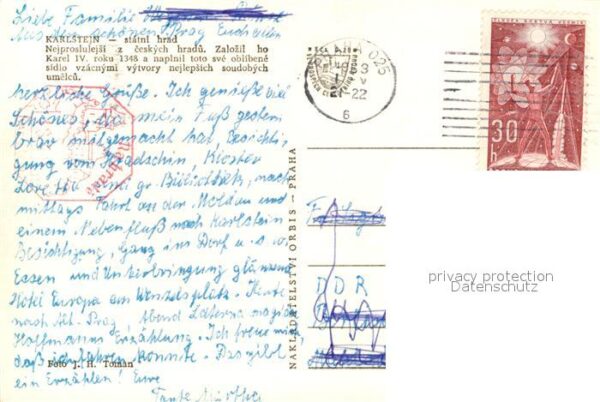 Liebe Familie
Aus dem schönen Prag Euch allen
KARLŠTEJN — státní hrad
Nejproslulejší z českých hradů. Založil ho
Karel IV. roku 1348 a naplnil toto své oblíbené
sídlo vzácnými výtvory nejlepších soudobých
umělců.
herzliche Grüße. Ich genieße viel
Schönes, da mein Fuß gestern
brav mitgemacht hat. Besichti-
gung vom Hradschin, Kloster
Loretto und gr. Bibliothek, nach-
mittags Fahrt an der Moldau und
einem Nebenfluß nach Karlstein
Besichtigung, Gang ins Dorf u.s.w.
Essen und Unterbringung glänzend
Hotel Europa am Wenzelsplatz. Heute
nach Alt-Prag, Abend Laterna magica
Hoffmanns Erzählung. Ich freue mich,
daß ich fahren konnte. Das gibt
Foto J. H. Toman
ein Erzählen! Eure
Tante Martha
NAKLADATELSTVÍ ORBIS — PRAHA
025
3
-22
6
30
h
DDR
privacy protection
Datenschutz